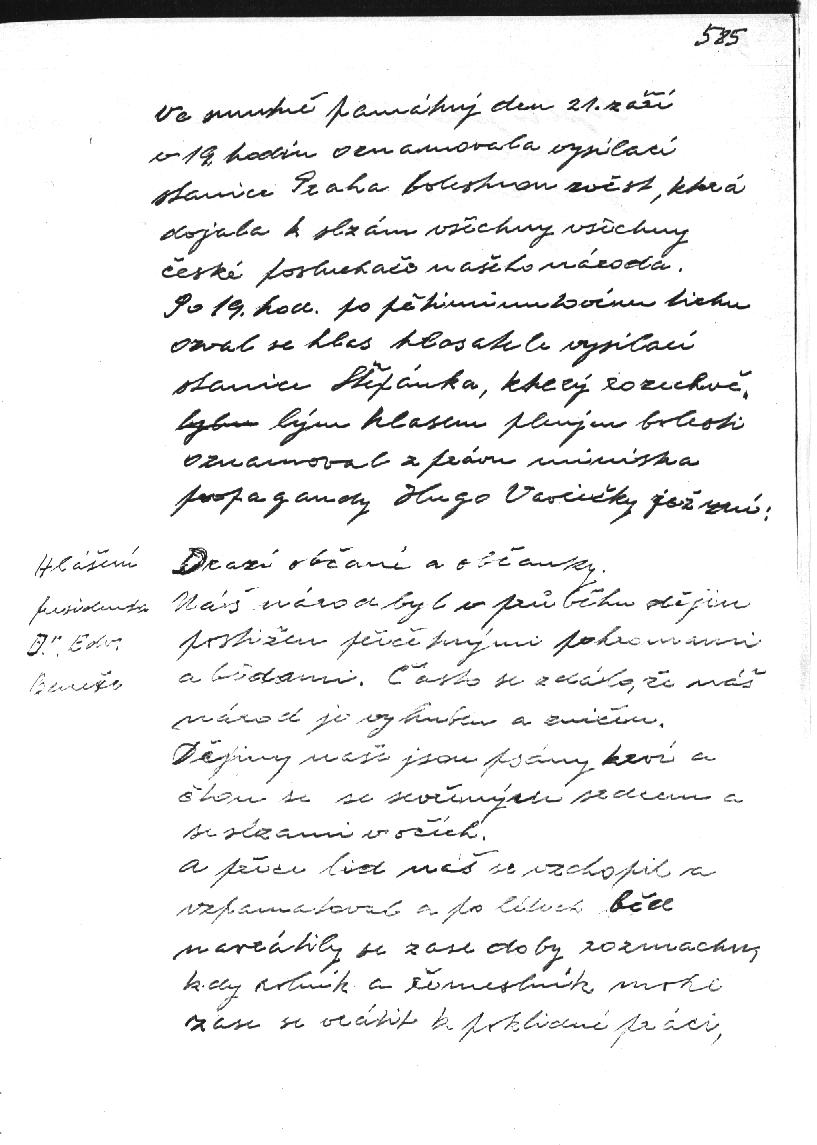 585
Ve smutně památný den 21. září
v 19. hodin oznamovala vysílací
stanice Praha bolestnou zvěst, která
dojala k slzám všechny všechny
české posluchače našeho národa.
Po 19. hod. po pětiminutovém tichu
ozval se hlas hlasatele vysílací
stanice Štěpánka, který rozechvě,
lým hlasem plným bolesti
oznamoval zprávu ministra
propagandy Hugo Vavrečky jež zní:
Hlášení
presidenta
Dr. Edv.
Beneše
Drazí občané a občanky.
Náš národ byl v průběhu dějin
postižen přečetnými pohromami
a bědami. Často se zdálo, že náš
národ je vyhuben a zničen.
Dějiny naše jsou psány krví a
čtou se se sevřeným srdcem a
se slzami v očích.
A přece lid náš se vzchopil a
vzpamatoval a po létech běd
navrátily se zase doby rozmachu,
kdy rolník a řemeslník mohl
zase se vrátit k poklidné práci,